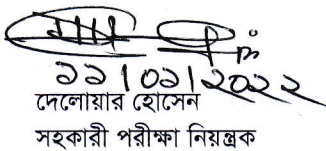 ১১/০১/২০২২
দেলোয়ার হোসেন
সহকারী পরীক্ষা নিয়ন্ত্রক